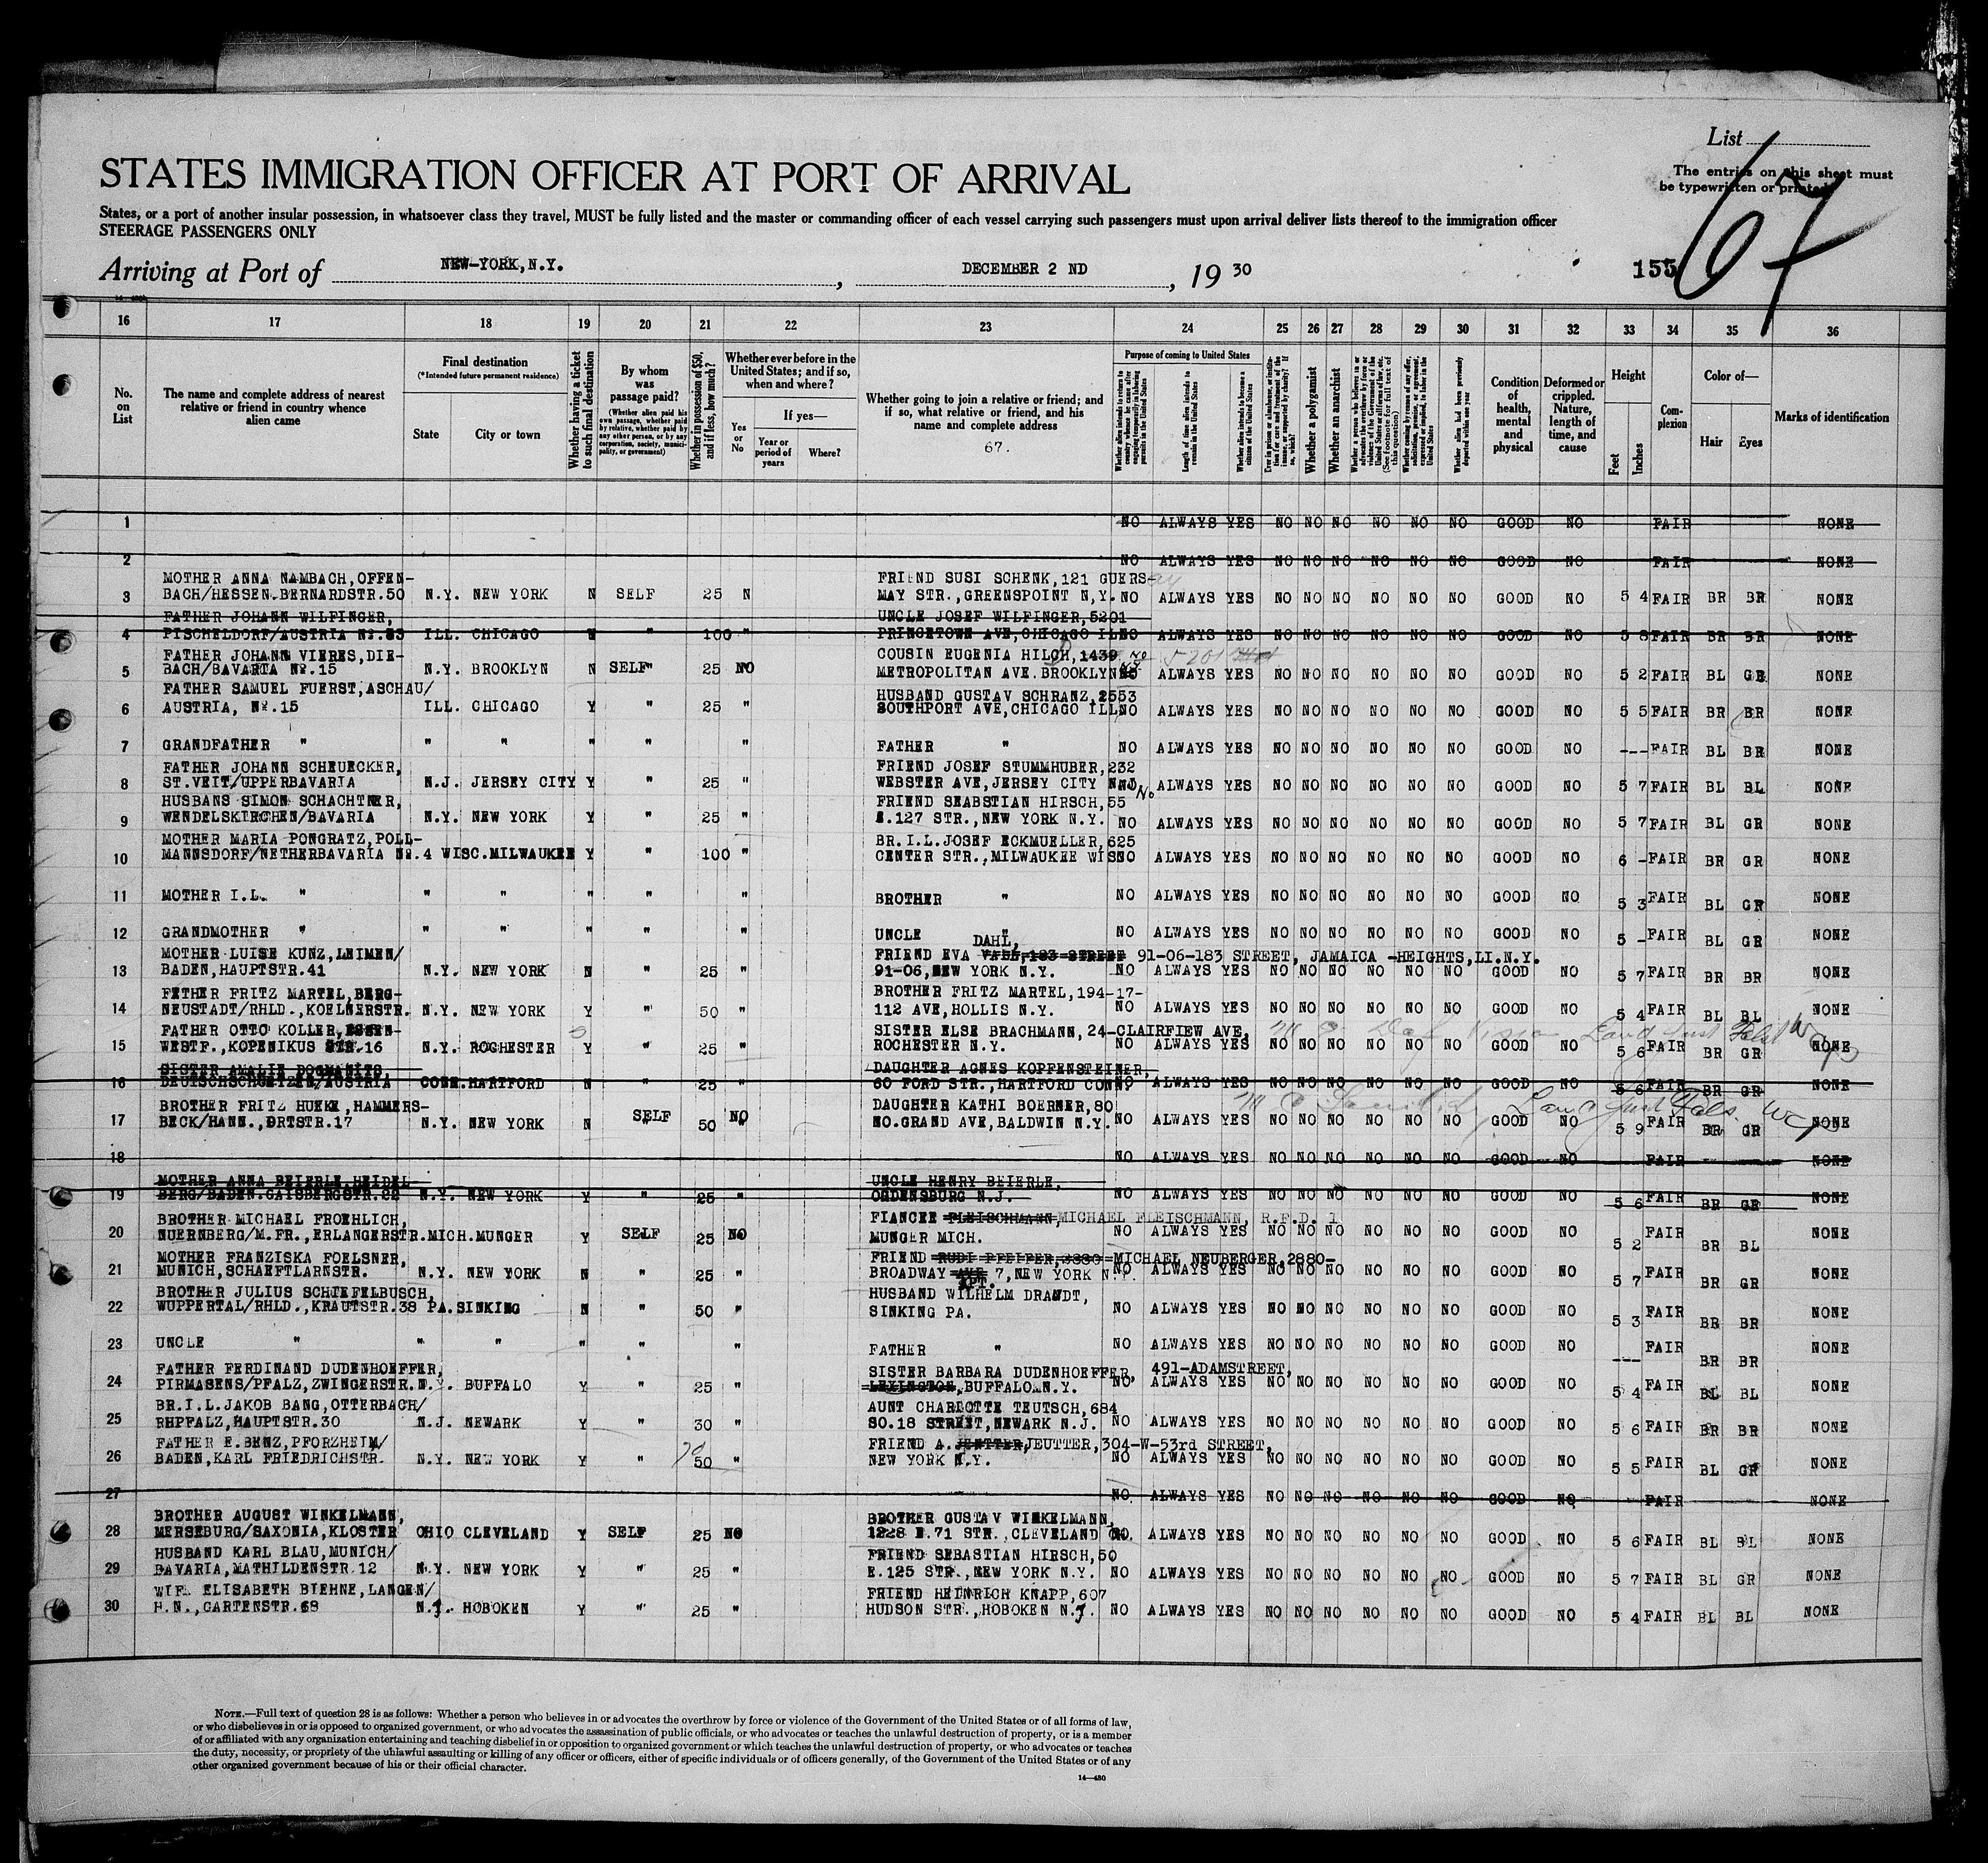 List
The entries on this sheet must
be typewritten or printed
67
STATES IMMIGRATION OFFICER AT PORT OF ARRIVAL
States, or a port of another insular possession, in whatsoever class they travel, MUST be fully listed and the master or commanding officer of each vessel carrying such passengers must upon arrival deliver lists thereof to the immigration officer
STEERAGE PASSENGERS ONLY
Arriving at Port of NEW-YORK, N.Y. , DECEMBER 2 ND , 19 30 155
16 17 18 19 20 21 22 23 24 25 26 27 28 29 30 31 32 33 34 35 36
No. on List
The name and complete address of nearest relative or friend in country whence alien came
Final destination
(*Intended future permanent residence)
State City or town
Whether having a ticket to such final destination
By whom was passage paid?
(Whether alien paid his own passage, whether paid by relative, whether paid by any other person, or by any corporation, society, municipality, or government)
Whether in possession of $50, and if less, how much?
Whether ever before in the United States; and if so, when and where?
Yes or No
If yes—
Year or period of years Where?
Whether going to join a relative or friend; and if so, what relative or friend, and his name and complete address
67.
Purpose of coming to United States
Length of time alien intends to remain in the United States
Whether alien intends to become a citizen of the United States
Whether a polygamist
Whether an anarchist
Condition of health, mental and physical
Deformed or crippled. Nature, length of time, and cause
Height
Feet Inches
Complexion
Color of—
Hair Eyes
Marks of identification
1 NO ALWAYS YES NO NO NO NO NO NO GOOD NO FAIR NONE
2 NO ALWAYS YES NO NO NO NO NO NO GOOD NO FAIR NONE
MOTHER ANNA NAMBACH, OFFEN- FRIEND SUSI SCHENK, 121 GUERS-
3 BACH/HESSEN.BERNARDSTR.50 N.Y. NEW YORK N SELF 25 N MAY STR., GREENSPOINT N,Y. NO ALWAYS YES NO NO NO NO NO NO GOOD NO 5 4 FAIR BR BR NONE
FATHER JOHANN WILFINGER, UNCLE JOSEF WILFINGER, 5201
4 PISCHELDORF/AUSTRIA Nº.83 ILL. CHICAGO N " 100 PRINCETOWN AVE, CHICAGO ILL NO ALWAYS YES NO NO NO NO NO NO GOOD NO 5 8 FAIR BR BR NONE
FATHER JOHANN VIERES, DIE- COUSIN EUGENIA HILCH, 1439
5 BACH/BAVARIA Nº.15 N.Y. BROOKLYN N SELF" 25 NO METROPOLITAN AVE. BROOKLYN NO ALWAYS YES NO NO NO NO NO NO GOOD NO 5 2 FAIR BL GR NONE
FATHER SAMUEL FUERST, ASCHAU/ HUSBAND GUSTAV SCHRANZ, 2553
6 AUSTRIA, Nº.15 ILL. CHICAGO Y " 25 " SOUTHPORT AVE, CHICAGO ILL NO ALWAYS YES NO NO NO NO NO NO GOOD NO 5 5 FAIR BR BR NONE
7 GRANDFATHER " " " " " " FATHER " NO ALWAYS YES NO NO NO NO NO NO GOOD NO --- FAIR BL BR NONE
FATHER JOHANN SCHEUECKER, FRIEND JOSEF STUMMHUBER, 232
8 ST.VEIT/UPPERBAVARIA N.J. JERSEY CITY Y " 25 " WEBSTER AVE, JERSEY CITY N.J. ALWAYS YES NO NO NO NO NO NO GOOD NO 5 7 FAIR BL BL NONE
HUSBANS SIMON SCHACHTNER, No FRIEND SEABSTIAN HIRSCH, 55
9 WENDELSKIRCHEN/BAVARIA N.Y. NEW YORK Y " 25 " E.127 STR., NEW YORK N.Y. NO ALWAYS YES NO NO NO NO NO NO GOOD NO 5 7 FAIR BL GR NONE
MOTHER MARIA PONGRATZ, POLL- BR.I.L. JOSEF ECKMUELLER, 625
10 MANNSDORF/NETHERBAVARIA Nº.4 WISC. MILWAUKEE Y " 100 " CENTER STR., MILWAUKEE WIS NO ALWAYS YES NO NO NO NO NO NO GOOD NO 6 - FAIR BR GR NONE
11 MOTHER I.L. " " " " " " BROTHER " NO ALWAYS YES NO NO NO NO NO NO GOOD NO 5 3 FAIR BL GR NONE
12 GRANDMOTHER " " " " " " UNCLE " NO ALWAYS YES NO NO NO NO NO NO GOOD NO 5 - FAIR BL GR NONE
DAHL,
MOTHER LUISE KUNZ, LEIMEN/ FRIEND EVA 183 STREET 91-06-183 STREET, JAMAICA -HEIGHTS, LI.N.Y.
13 BADEN, HAUPTSTR.41 N.Y. NEW YORK N " 25 " 91-06, NEW YORK N.Y. NO ALWAYS YES NO NO NO NO NO NO GOOD NO 5 7 FAIR BR BR NONE
FETHER FRITZ MARTEL, BERG- BROTHER FRITZ MARTEL, 194-17-
14 NEUSTADT/RHLD., KOELNERSTR. N.Y. NEW YORK Y " 50 " 112 AVE, HOLLIS N.Y. NO ALWAYS YES NO NO NO NO NO NO GOOD NO 5 4 FAIR BL BL NONE
FATHER OTTO KOLLER, ESSEN- SISTER ELSE BRACHMANN, 24-CLAIRFIEW AVE,
15 WESTF., KOPENIKUS STR.16 N.Y. ROCHESTER Y " 25 " ROCHESTER N.Y. NO ALWAYS YES NO NO NO NO NO NO GOOD NO 5 6 FAIR BR GR NONE
SISTER AMALIE DAUGHTER AGNES KOPFENSTEINER,
16 DEUTSCHSCHUETZEN/AUSTRIA CONN. HARTFORD N " 25 60 FORD STR., HARTFORD CONN. NO ALWAYS YES NO NO NO NO NO NO GOOD NO 5 6 FAIR BR GR NONE
BROTHER FRITZ HUEKE, HAMMERS- DAUGHTER KATHI BOERNER, 80
17 BECK/HANN., ORTSTR.17 N.Y. NEW YORK N SELF 50 NO NO.GRAND AVE, BALDWIN N.Y. NO ALWAYS YES NO NO NO NO NO NO GOOD NO 5 9 FAIR BR GR NONE
18 NO ALWAYS YES NO NO NO NO NO NO GOOD NO FAIR NONE
MOTHER ANNA BEIERLE, HEIDEL- UNCLE HENRY BEIERLE,
19 BERG/BADEN.GAISBERGSTR.22 N.Y. NEW YORK Y " 25 " OGDENSBURG N.J. NO ALWAYS YES NO NO NO NO NO NO GOOD NO 5 6 FAIR BR GR NONE
BROTHER MICHAEL FROEHLICH, FIANCEE FLEISCHMANN, MICHAEL FLEISCHMANN, R.F.D. 1
20 NUERNBERG/M.FR., ERLANGERSTR. MICH. MUNGER Y SELF 25 NO MUNGER MICH. NO ALWAYS YES NO NO NO NO NO NO GOOD NO 5 2 FAIR BR BL NONE
MOTHER FRANZISKA FOELSNER, FRIEND RUDI PFEIFER, 2880 MICHAEL NEUBERGER, 2880-
21 MUNICH, SCHAEFTLARNSTR. N.Y. NEW YORK N " 25 " BROADWAY AVE 7, NEW YORK N.Y. NO ALWAYS YES NO NO NO NO NO NO GOOD NO 5 7 FAIR BR GR NONE
APT.
BROTHER JULIUS SCHTEFELBUSCH, HUSBAND WILHELM DRANDT,
22 WUPPERTAL/RHLD., KRAUTSTR.38 PA. SINKING N " 50 " SINKING PA. NO ALWAYS YES NO NO NO NO NO NO GOOD NO 5 3 FAIR BR BR NONE
23 UNCLE " " " " " " FATHER " NO ALWAYS YES NO NO NO NO NO NO GOOD NO --- FAIR BR BR NONE
FATHER FERDINAND DUDENHOEFFER, SISTER BARBARA DUDENHOEFFER, 491-ADAMSTREET,
24 PIRMASENS/PFALZ, ZWINGERSTR. N.Y. BUFFALO Y " 25 " LEXINGTON, BUFFALO N.Y. NO ALWAYS YES NO NO NO NO NO NO GOOD NO 5 4 FAIR BL BL NONE
BR.I.L. JAKOB BANG, OTTERBACH/ AUNT CHARLOTTE TEUTSCH, 684
25 RHPFALZ, HAUPTSTR.30 N.J. NEWARK Y " 30 " SO.18 STREET, NEWARK N.J. NO ALWAYS YES NO NO NO NO NO NO GOOD NO 5 6 FAIR BR BR NONE
FATHER E.BENZ, PFORZHEIM/ FRIEND A. JEUTTER, 304-W-53rd STREET,
26 BADEN, KARL FRIEDRICHSTR. N.Y. NEW YORK Y " 50 " NEW YORK N.Y. NO ALWAYS YES NO NO NO NO NO NO GOOD NO 5 5 FAIR BL GR NONE
27 NO ALWAYS YES NO NO NO NO NO NO GOOD NO FAIR NONE
BROTHER AUGUST WINKELMANN, BROTHER GUSTAV WINKELMANN,
28 MERSEBURG/SAXONIA, KLOSTER OHIO CLEVELAND Y SELF 25 NO 1228 E.71 STR., CLEVELAND NO ALWAYS YES NO NO NO NO NO NO GOOD NO 5 6 FAIR BL BL NONE
HUSBAND KARL BLAU, MUNICH/ FRIEND SEBASTIAN HIRSCH, 50
29 BAVARIA, MATHILDENSTR.12 N.Y. NEW YORK Y " 25 " E.125 STR., NEW YORK N.Y. NO ALWAYS YES NO NO NO NO NO NO GOOD NO 5 7 FAIR BL GR NONE
WIFE ELISABETH BIEHNE, LANGEN/ FRIEND HEINRICH KNAPP, 607
30 H.N., GARTENSTR.68 N.J. HOBOKEN Y " 25 " HUDSON STR., HOBOKEN N.J. NO ALWAYS YES NO NO NO NO NO NO GOOD NO 5 4 FAIR BL BL NONE
NOTE.—Full text of question 28 is as follows: Whether a person who believes in or advocates the overthrow by force or violence of the Government of the United States or of all forms of law,
or who disbelieves in or is opposed to organized government, or who advocates the assassination of public officials, or who advocates or teaches the unlawful destruction of property, or is a member
of or affiliated with any organization entertaining and teaching disbelief in or opposition to organized government or which teaches the unlawful destruction of property, or who advocates or teaches
the duty, necessity, or propriety of the unlawful assaulting or killing of any officer or officers, either of specific individuals or of officers generally, of the Government of the United States or of any
other organized government because of his or their official character.
14—480